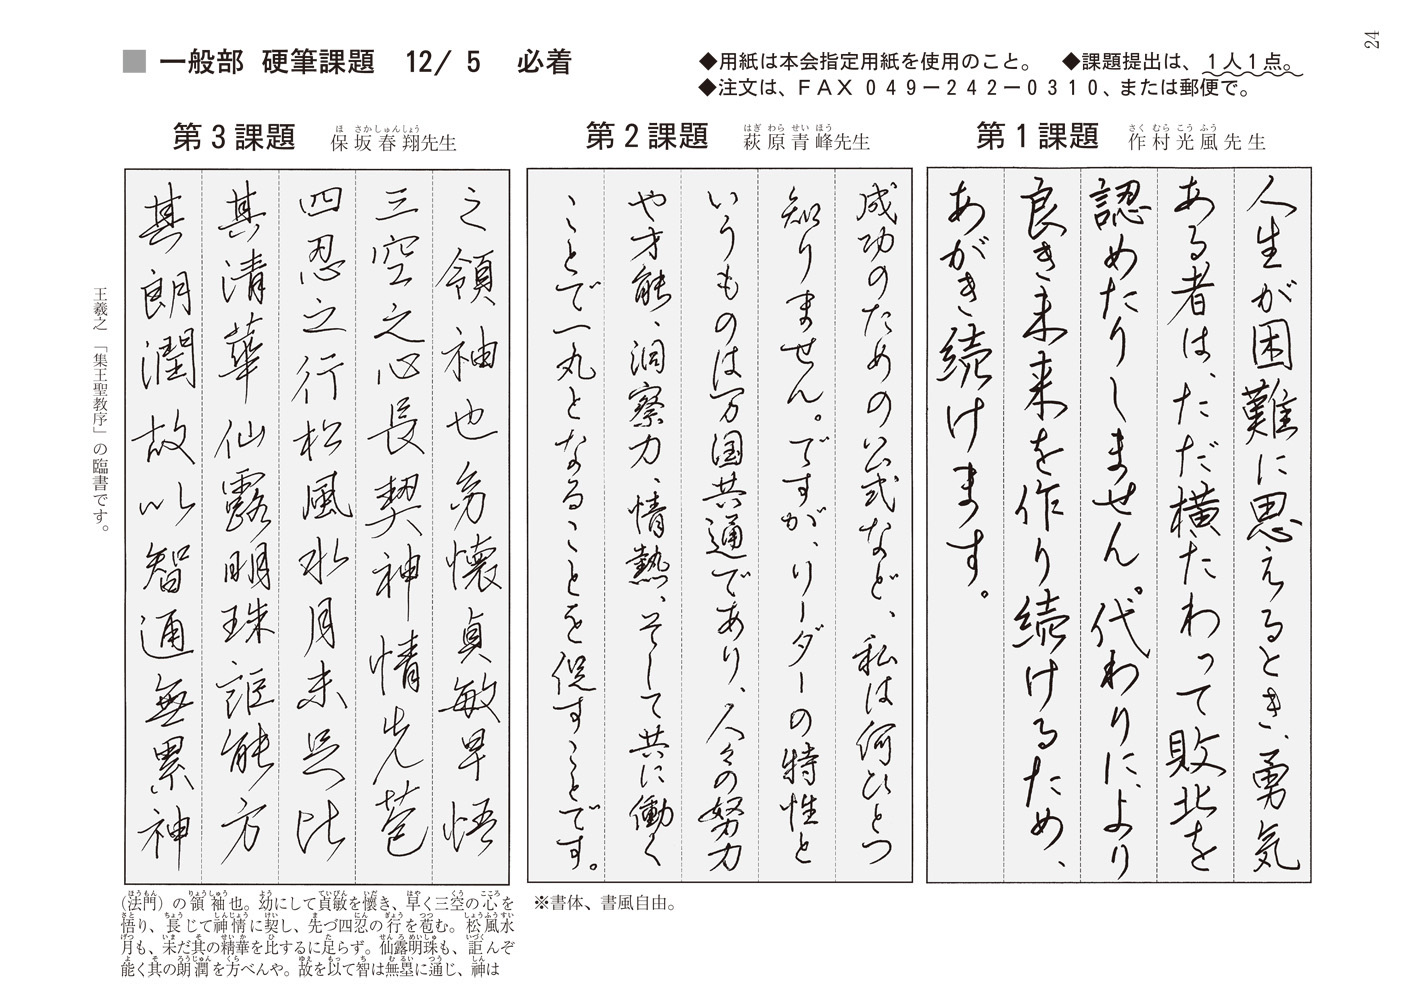 24
■ 一般部 硬筆課題 12/ 5 必着
◆用紙は本会指定用紙を使用のこと。 ◆課題提出は、1人1点。
◆注文は、ＦＡＸ０４９－２４２－０３１０、または郵便で。
第1課題 作村光風先生
さく むら こう ふう
人生が困難に思えるとき、勇気
ある者は、ただ横たわって敗北を
認めたりしません。代わりに、より
良き未来を作り続けるため、
あがき続けます。
第2課題 萩原青峰先生
はぎ わら せい ほう
成功のための公式など、私は何ひとつ
知りません。ですが、リーダーの特性と
いうものは万国共通であり、人々の努力
や才能、洞察力、情熱、そして共に働く
ことで一丸となることを促すことです。
※書体、書風自由。
第3課題 保坂春翔先生
ほ さか しゅん しょう
之領袖也幼懐貞敏早悟
三空之心長契神情先苞
四忍之行松風水月未足比
其清華仙露明珠詎能方
其朗潤故以智通無累神
王羲之「集王聖教序」の臨書です。
（法門）の領袖也。幼にして貞敏を懐き、早く三空の心を
悟り、長じて神情に契し、先づ四忍の行を苞む。松風水
月も、未だ其の精華を比するに足らず。仙露明珠も、詎んぞ
能く其の朗潤を方べんや。故を以て智は無塁に通じ、神は